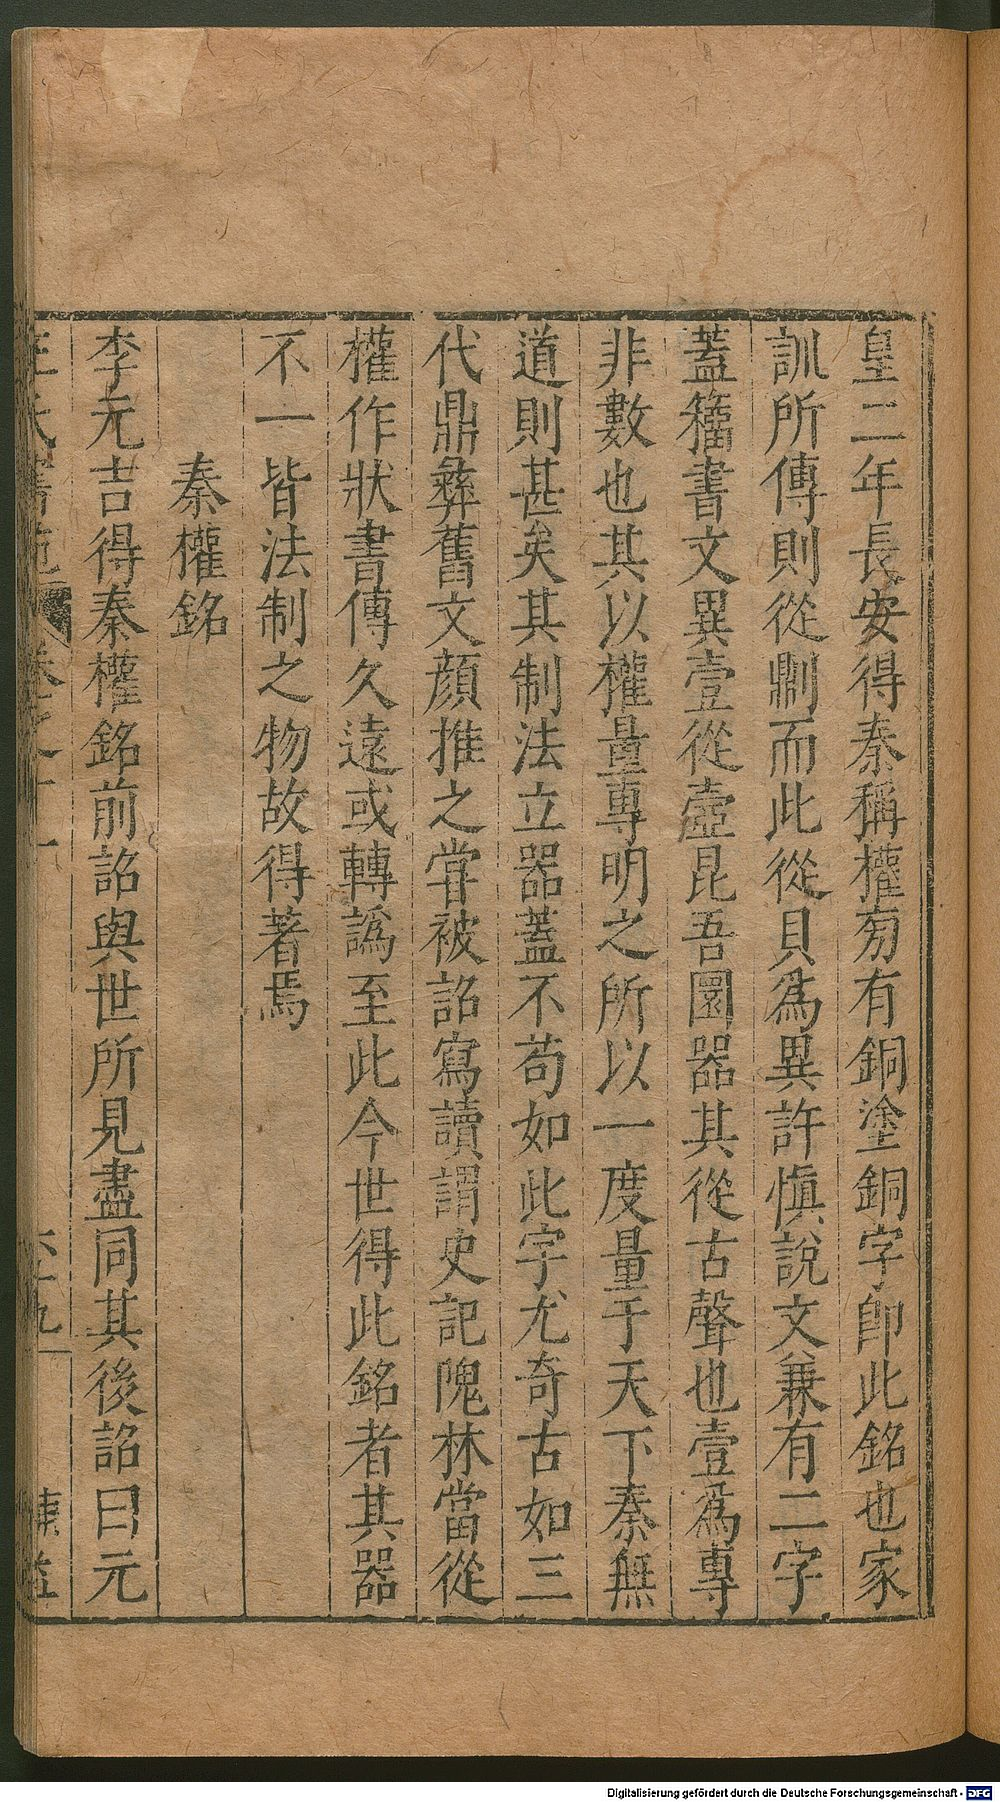 皇二年長安得秦稱權旁有銅塗銅字即此銘也家
訓所傳則從鼎而此從貝為異許愼說文兼有二字
蓋籀書文異壹從壺昆吾圜器其從古聲也壹為專
非數也其以權量專明之所以一度量于天下秦無
道則甚矣其制法立器蓋不苟如此字尤奇古如三
代鼎彝舊文顏推之嘗被詔寫讀謂史記隗林當從
權作狀書傳久遠或轉譌至此今世得此銘者其器
不一皆法制之物故得著焉
秦權銘
李元吉得秦權銘前詔與世所見盡同其後詔曰元
Digitalisierung gefördert durch die Deutsche Forschungsgemeinschaft - DFG